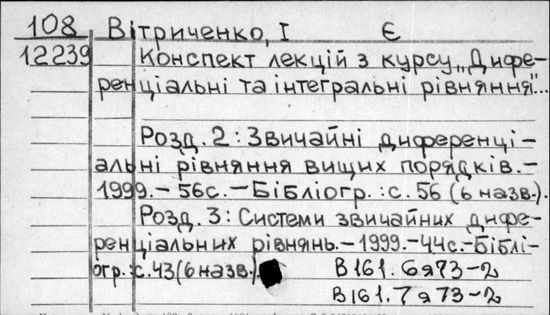 108 Вітриченко, І Є
12239 Конспект лекцій з курсу „Дифе-
ренціальні та інтегральні рівняння"...
Розд. 2: Звичайні диференці-
альні рівняння вищих порядків.–
1999.–56с.–Бібліогр.:с.56 (6 назв.).
Розд. 3: Системи звичайних дифе-
ренціальних рівнянь.–1999.–44с.–Біблі-
огр.:с.43(6 назв.).
В161.6я73–2
В161.7я73–2